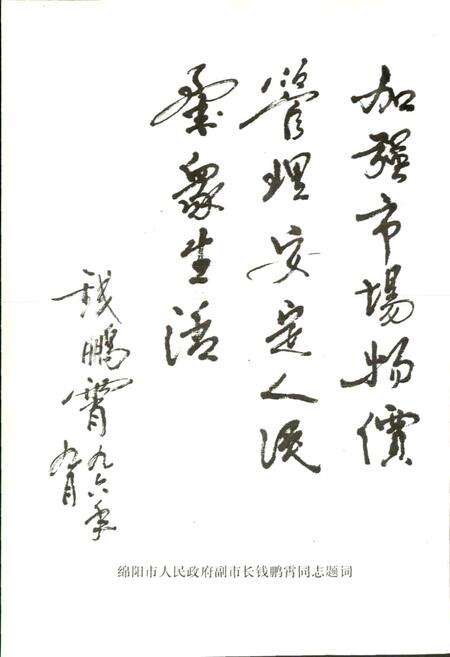 加强市場物價
管理安定人民
羣衆生活
钱鵬霄
九六年
九月
绵阳市人民政府副市长钱鹏霄同志题词